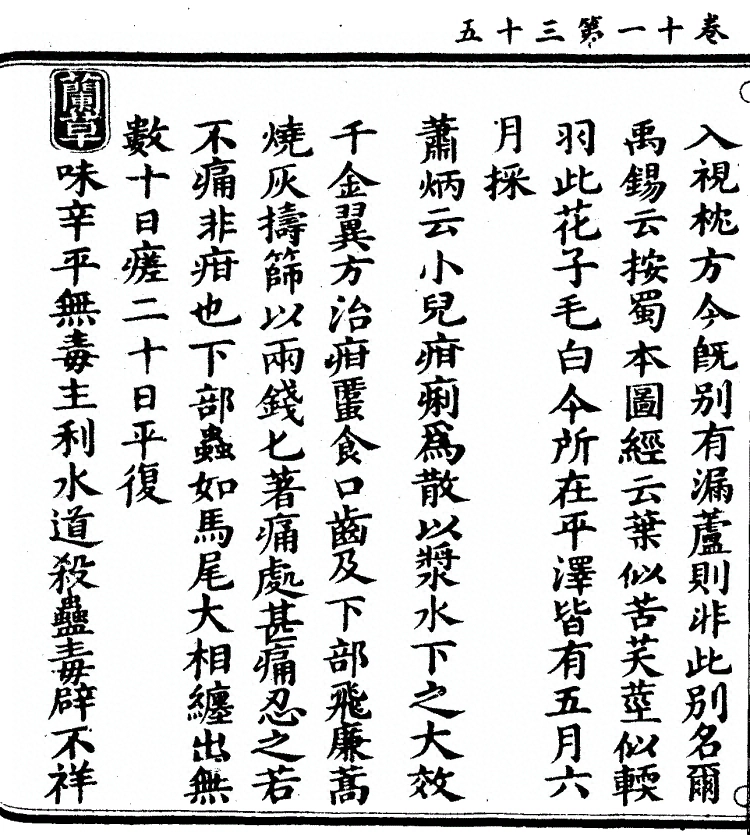 卷十一第三十五
入視枕方今旣别有漏蘆則非此别名爾
禹錫云按蜀本圖經云葉似苦芙莖似䡱
羽此花子毛白今所在平澤皆有五月六
月採
蕭炳云小兒疳痢爲散以漿水下之大效
千金翼方治疳䘌食口齒及下部飛廉蒿
燒灰擣篩以兩錢匕著痛處甚痛忍之若
不痛非疳也下部蟲如馬尾大相纏出無
數十日瘥二十日平復
蘭草 味辛平無毒主利水道殺蠱毒辟不祥